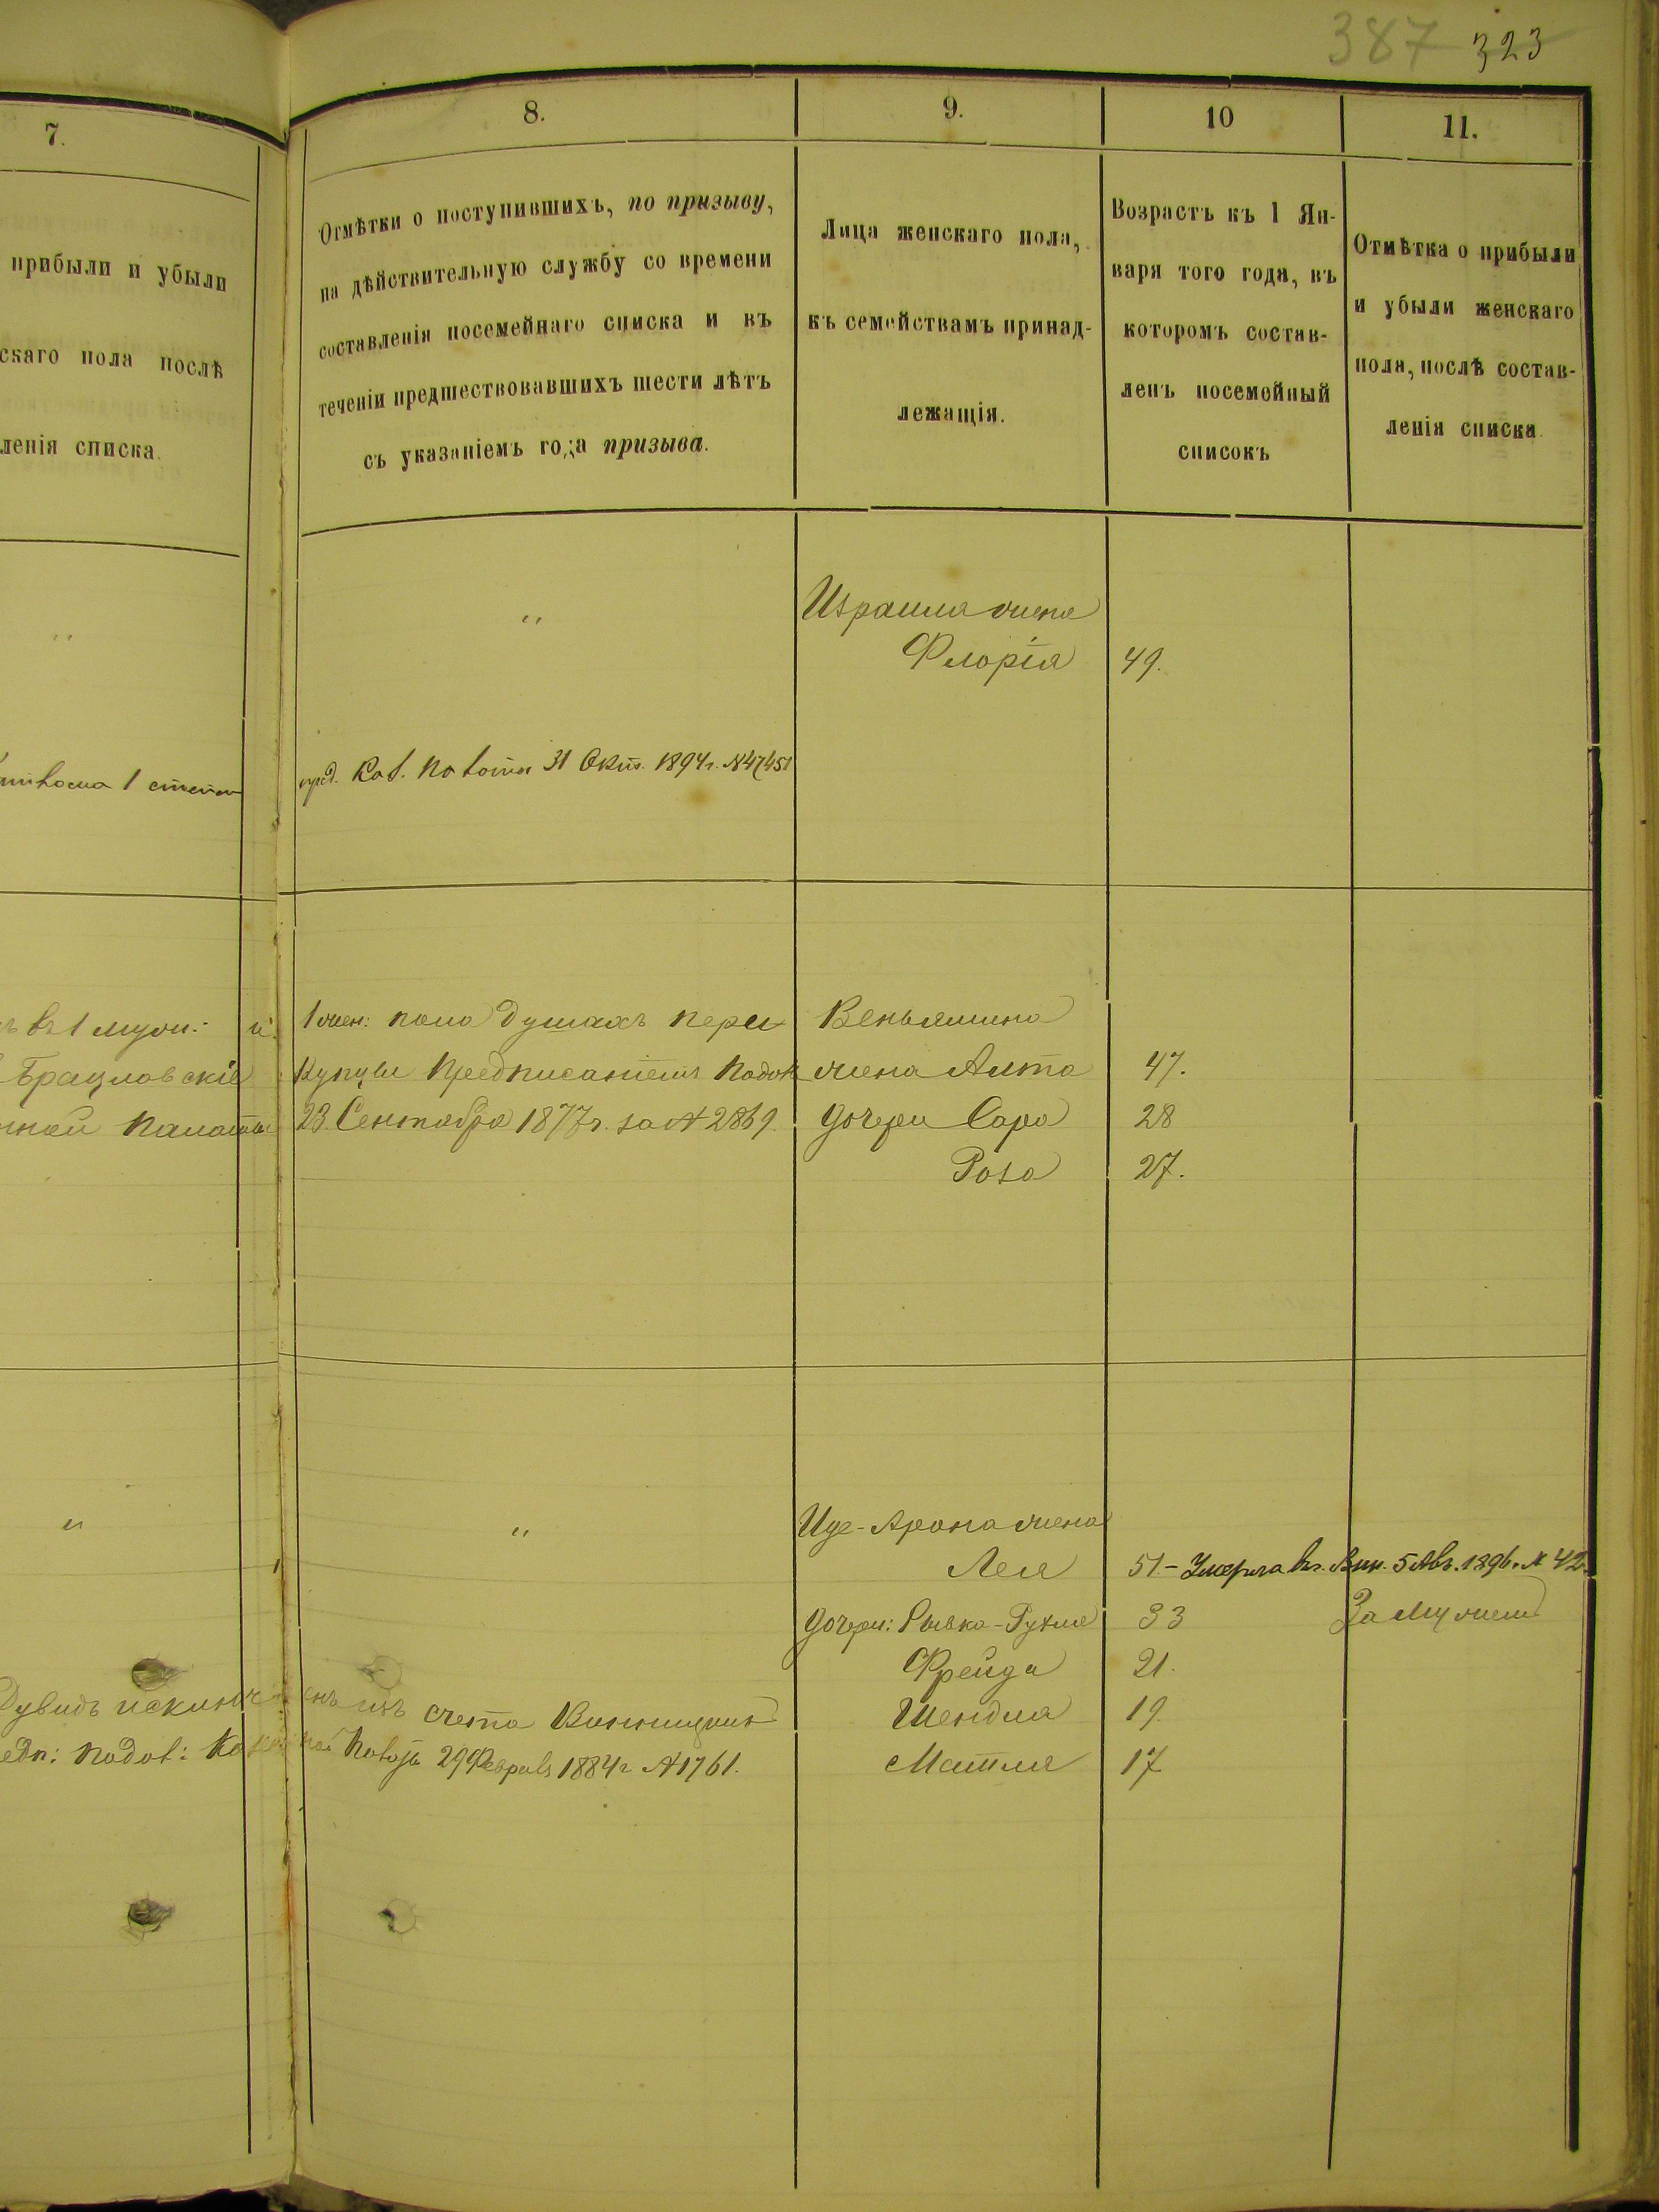 387 323
7.
прибыли и убыли
скаго пола послѣ
ленія списка.
8.
Отмѣтки о поступившихъ, по призыву,
на дѣйствительную службу со времени
составленія посемейнаго списка и въ
теченіи предшествовавшихъ шести лѣтъ
съ указаніемъ года призыва.
9.
Лица женскаго пола,
къ семействамъ принад-
лежащія.
10
Возрастъ къ 1 Ян-
варя того года, въ
которомъ состав-
ленъ посемейный
списокъ
11.
Отмѣтка о прибыли
и убыли женскаго
пола, послѣ состав-
ленія списка.
"
"
Израиля жена
Флорія 49.
1 степен пред. Каз. Палаты 31 Окт. 1894 г. №
въ 1 муж: и 1 жен: пола душахъ
Брацловскіе Купцы Предписаніемъ
Палаты 23. Сентября 1877 г. за № 2869.
Веньямина
жена Алта 47.
дочери Сара 28
Роза 27.
"
"
Ице-Арона жена
Лея 51. - Умерла 5 Авг. 1896 г. № 42.
дочери: Рывка-Рухля 33 За мужем
Фрейда 21.
Шендля 19.
Матля 17
Дувидъ исключенъ изъ счета
Подол: Казенной Палаты 29 Февраля 1884 г № 1761.